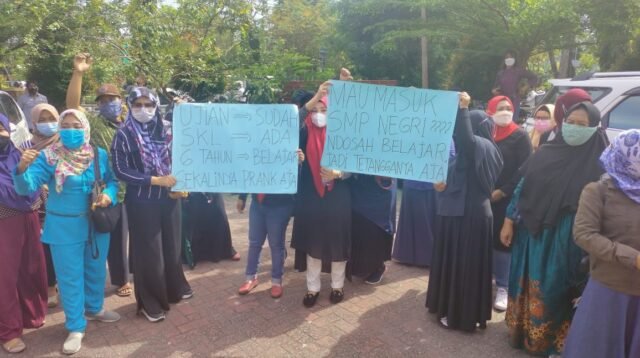 UJIAN ⇒ SUDAH
SKL ⇒ ADA
6 TAHUN ⇒ BELAJAR
SEKALINDA PRANK ATA
MAU MASUK
SMP NEGRI ????
NDOSAH BELAJAR
JADI TETANGGANYA ATA